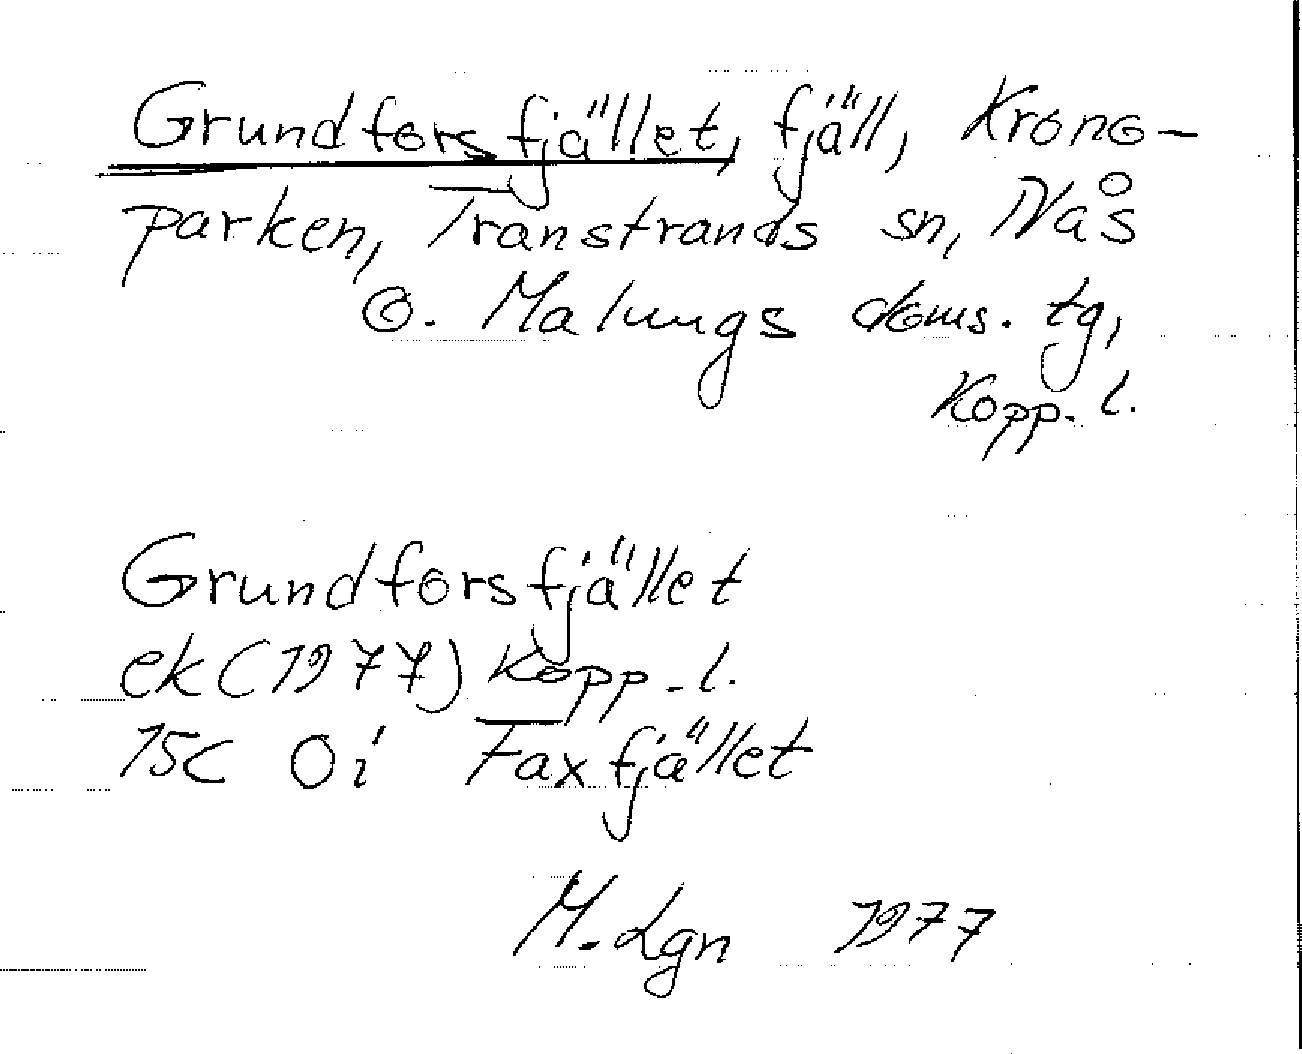 Grundforsfjället, fjäll, Krono-
parken, Transtrands sn, Nås
o. Malungs doms. tg,
Kopp. l.
Grundforsfjället
ek (1977) Kopp. l.
15C 0i Faxfjället
M. Lgn 1977